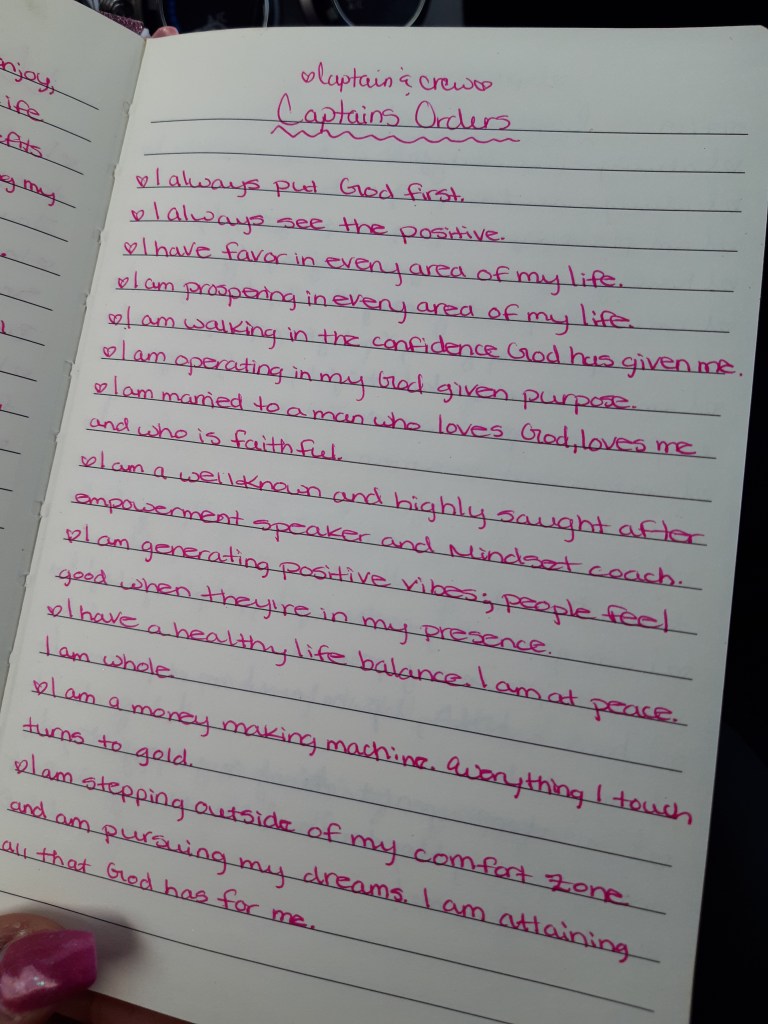 ♡Captain & crew♡
Captains Orders
njoy,
ife
fits
g my
♡I always put God first.
♡I always see the positive.
♡I have favor in every area of my life.
♡I am prospering in every area of my life.
♡I am walking in the confidence God has given me.
♡I am operating in my God given purpose.
♡I am married to a man who loves God, loves me
and who is faithful.
♡I am a wellknown and highly saught after
empowerment speaker and Mindset coach.
♡I am generating positive vibes; people feel
good when they're in my presence.
♡I have a healthy life balance. I am at peace.
I am whole.
♡I am a money making machine. Everything I touch
turns to gold.
♡I am stepping outside of my comfort zone
and am pursuing my dreams. I am attaining
all that God has for me.